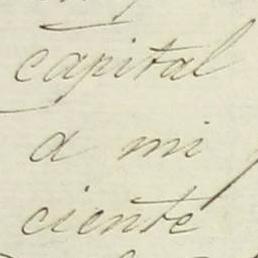 capital
a mi
ciente